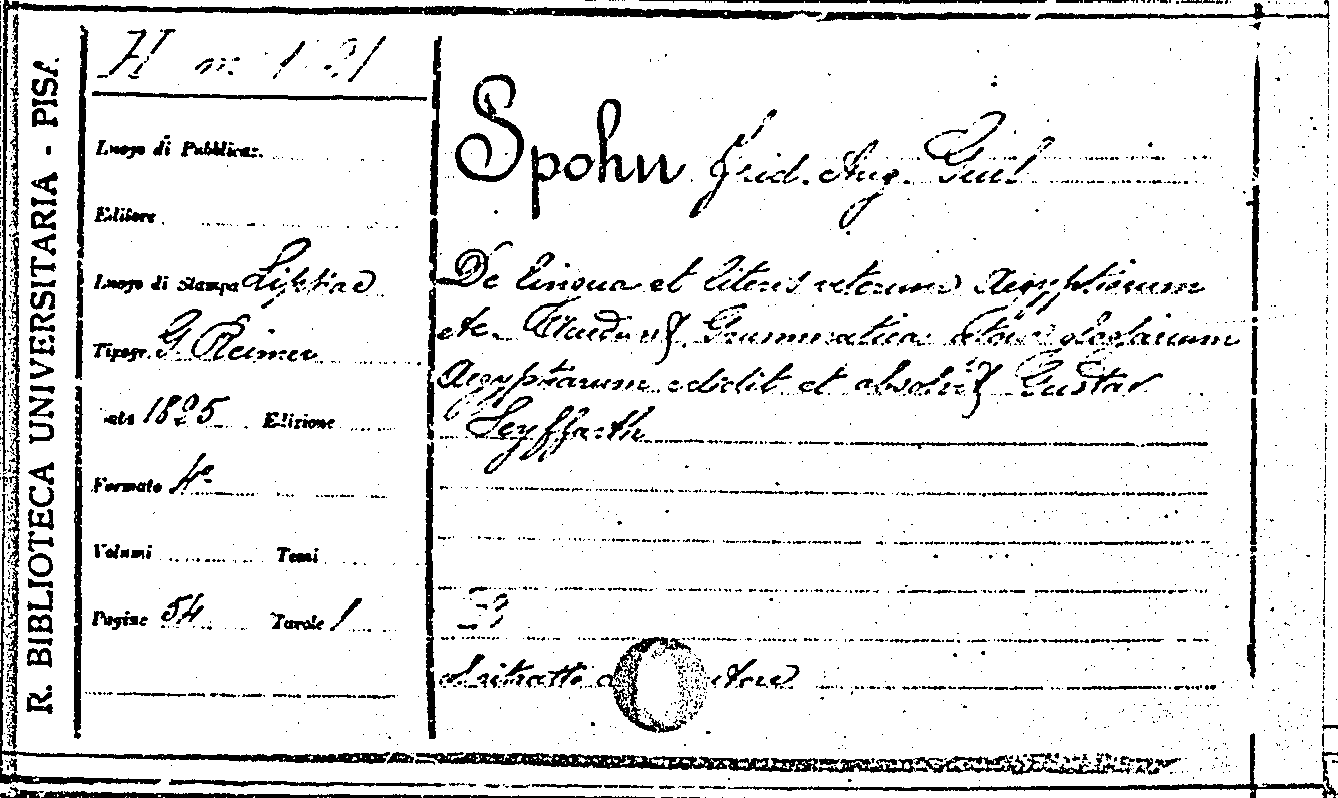 R. BIBLIOTECA UNIVERSITARIA - PISA
H m 1 21
Luogo di Pubblicaz.
Editore
Luogo di Stampa Lipsiae
Tipogr. G. Reimer
Data 1825 Edizione
Formato 4°
Volumi Tomi
Pagine 54 Tavole 1
Spohn Frid. Aug. Guil
De lingua et literis veterum Aegyptiorum
etc. Grammatica atque glossarium
Aegyptiarum edidit et absolvit Gustav
Seyffarth
ritratto